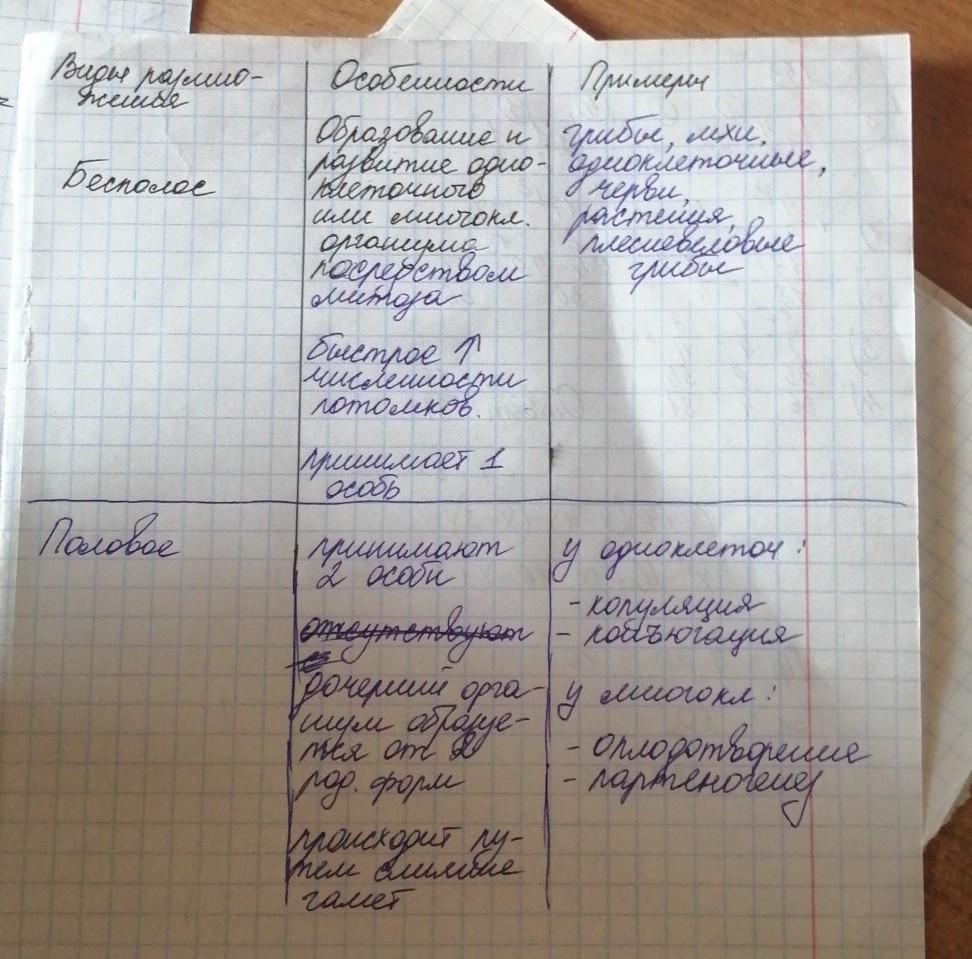 Виды размно-
жения
Бесполое
Особенности
Образование и
развитие одно-
клеточного
или многокл.
организма
посредством
митоза
быстрое ↑
численности
потомков.
принимает 1
особь
Примеры
грибы, мхи,
одноклеточные,
черви,
растения,
плесневеловые
грибы
Половое
принимают
2 особи
отсутствуют
дочерний орга-
низм образуе-
тся от 2
род. форм
происходит пу-
тем слияние
гамет
у одноклеточ:
- копуляция
- конъюгация
у многокл:
- оплодотворение
- партеногенез